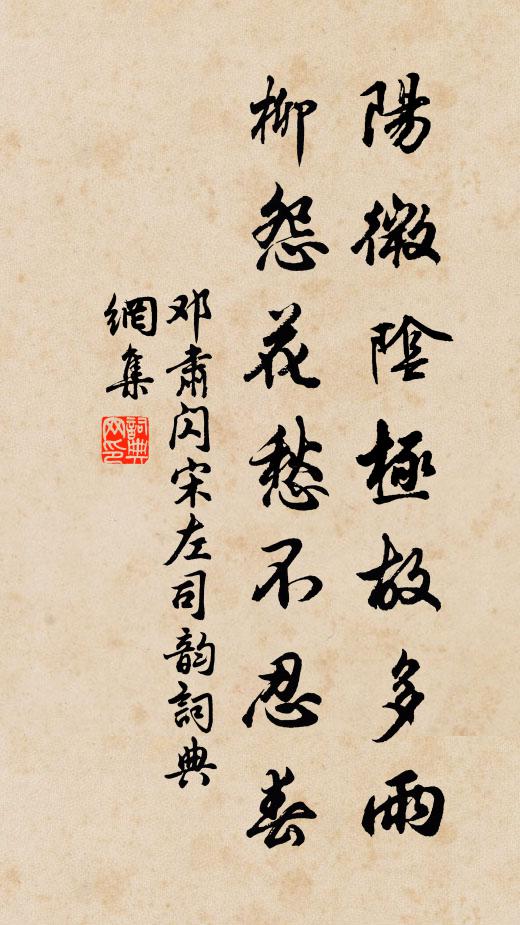 陽微陰極故多雨
柳怨花愁不忍春
邓肅闪宋左司韵詞典
網集
詞典网印